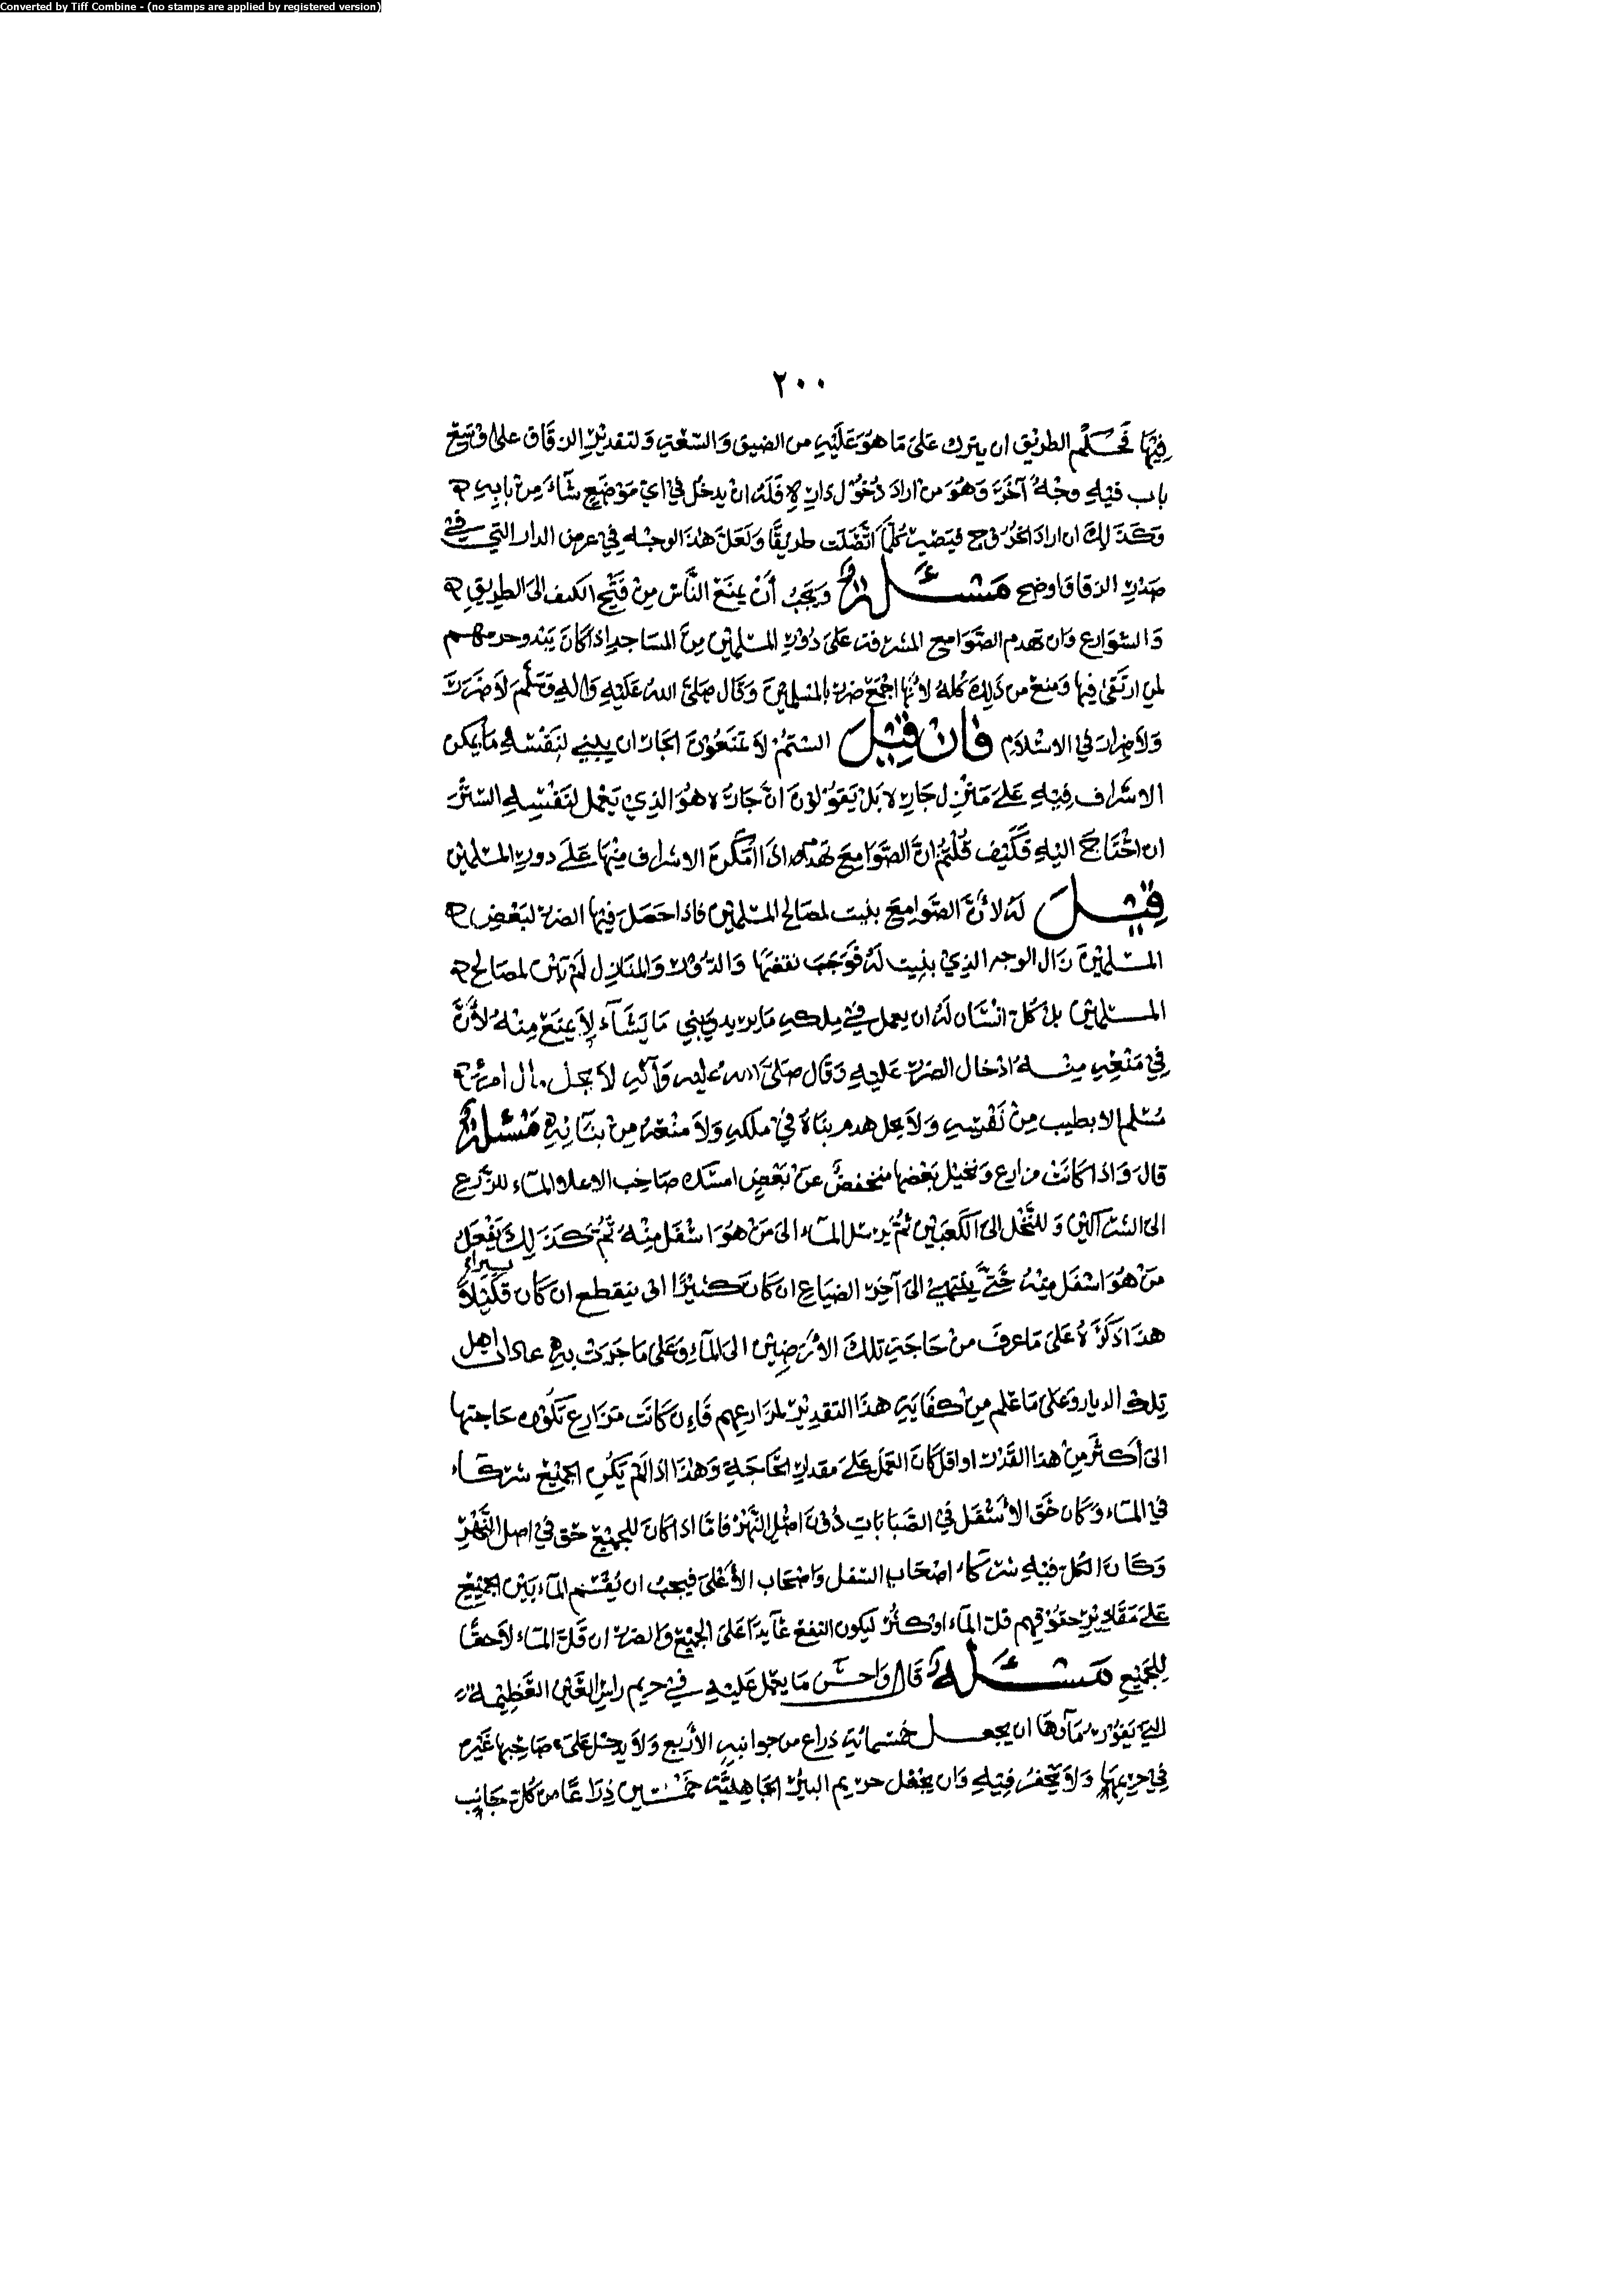 Converted by Tiff Combine - (no stamps are applied by registered version)
٢٠٠
فيها فحكم الطريق ان يترك على ما هو عليه من الضيق والسعة ولتقدير الزقاق على اوسع
باب فيه وجه آخر وهو من اراد دخول داره فله ان يدخل في اي موضع شاء من بابه
وكذلك ان اراد الخروج فيصير كلما اتصلت طريقا ولعل هذا الوجه في عرض الدار التي في
صدر الزقاق اوضح مسئلة ويجب أن يمنع الناس من فتح الكنف الى الطريق
والشوارع وان تهدم الصوامع المشرفة على دور المسلمين من المساجد اذا كان يبدو حرمهم
لمن ارتقى فيها ومنع من ذلك كله لأنها اجمع ضرر بالمسلمين وقال صلى الله عليه واله وسلم لا ضرر
ولا ضرار في الاسلام فان قيل الستم لا تمنعون الجار ان يبني لنفسه ما يمكن
الاشراف فيه على منزل جاره بل يقولون ان جاره هو الذي يعمل لنفسه الستر
ان احتاج اليه فكيف قلتم ان الصوامع تهدم اذا امكن الاشراف منها على دور المسلمين
قيل له لأن الصوامع بنيت لمصالح المسلمين فاذا حصل فيها الضرر لبعض
المسلمين زال الوجه الذي بنيت له فوجب نقضها والدور والمنازل لم تبن لمصالح
المسلمين بل كل انسان له ان يعمل في ملكه ما يريد ويبني ما يشآء لا يمنع منه لأن
في منعه منه ادخال الضرر عليه وقال صلى الله عليه وآله لا يحل مال امرئ
مسلم الا بطيب من نفسه ولا يحل هدم بناه في ملكه ولا منعه من بنآئه مسئلة
قال واذا كانت مزارع ونخيل بعضها منخفض عن بعض امسك صاحب الاعلا المآء للزرع
الى الشراكين وللنخل الى الكعبين ثم يرسل المآء الى من هو اسفل منه ثم كذلك يفعل
من هو اسفل منه حتى ينتهي الى آخر الضياع ان كان كثيرا او ينقطع ان كان قليلا
هذا ذكره على ما عرف من حاجة تلك الأرضين الى المآء وعلى ما جرت به عادات اهل
تلك الديار وعلى ما علم من كفاية هذا التقدير لمزارعهم فإن كانت مزارع تكون حاجتها
الى أكثر من هذا القدر او اقل كان العمل على مقدار الحاجة وهذا اذا لم يكن الجميع شركاء
في المآء وكان حق الأسفل في الصبابات دون اصل النهر فاما اذا كان للجميع حق في اصل النهر
وكان الكل فيه شركاء اصحاب السفل واصحاب الأعلى فيجب ان يقسم المآء بين الجميع
على مقادير حقوقهم قل المآء او كثر ليكون النفع عآيدا على الجميع والضرر ان قل المآء لاحقا
للجميع مسئلة قال واحسن ما يعمل عليه في حريم راس العين العظيمة
التي يفور مآؤها ان يجعل خمسمائة ذراع من جوانبه الأربع ولا يدخل على صاحبها غيره
في حريمها ولا يحفر فيه وان يجعل حريم البئر الجاهلية خمسين ذراعا من كل جانب